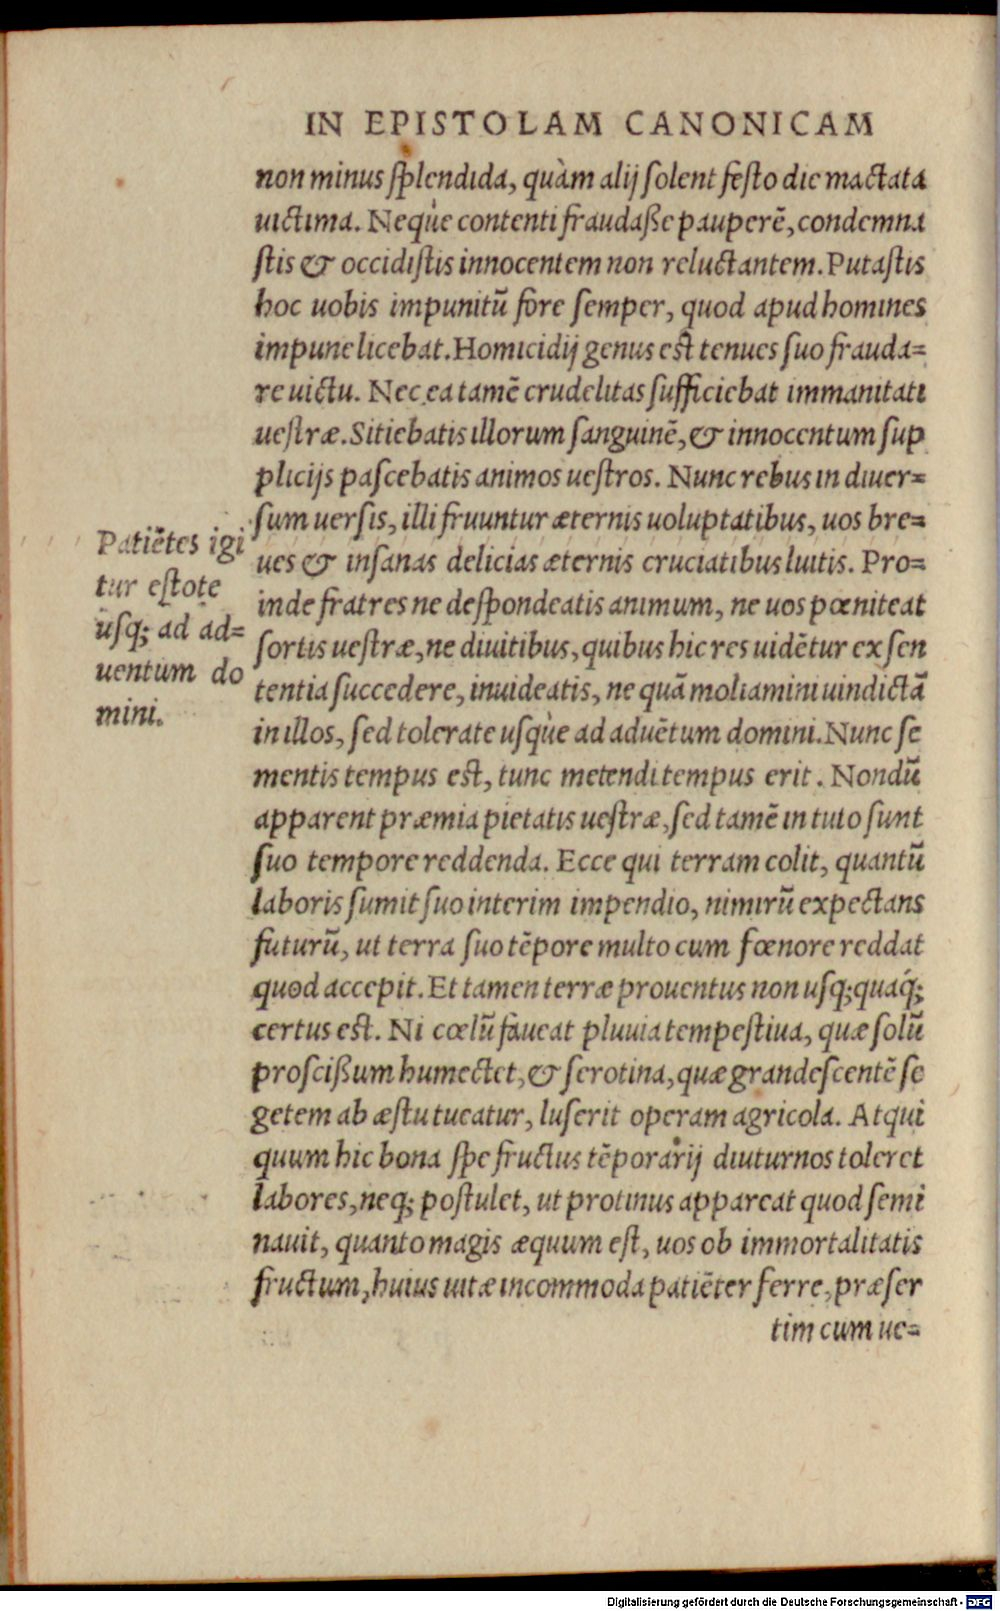 IN EPISTOLAM CANONICAM
non minus ſplendida, quàm alij ſolent feſto die mactata
uictima. Neque contenti fraudaße pauperē, condemna
ſtis & occidiſtis innocentem non reluctantem. Putaſtis
hoc uobis impunitū fore ſemper, quod apud homines
impune licebat. Homicidij genus est tenues ſuo frauda=
re uictu. Nec ea tamē crudelitas ſufficiebat immanitati
ueſtræ. Sitiebatis illorum ſanguinē, & innocentum ſup
plicijs paſcebatis animos ueſtros. Nunc rebus in diuer=
ſum uerſis, illi fruuntur æternis uoluptatibus, uos bre=
ues & inſanas delicias æternis cruciatibus luitis. Pro=
inde fratres ne deſpondeatis animum, ne uos pœniteat
ſortis ueſtræ, ne diuitibus, quibus hic res uidētur ex ſen
tentia ſuccedere, inuideatis, ne quā moliamini uindictā
in illos, ſed tolerate uſque ad aduētum domini. Nunc ſe
mentis tempus est, tunc metendi tempus erit. Nondū
apparent præmia pietatis ueſtræ, ſed tamē in tuto ſunt
ſuo tempore reddenda. Ecce qui terram colit, quantū
laboris ſumit ſuo interim impendio, nimirū expectans
futurū, ut terra ſuo tēpore multo cum fœnore reddat
quod accepit. Et tamen terræ prouentus non uſq; quaq́;
certus est. Ni cœlū faueat pluuia tempeſtiua, quæ ſolū
proſcißum humectet, & ſerotina, quæ grandeſcentē ſe
getem ab æſtu tueatur, luſerit operam agricola. Atqui
quum hic bona ſpe fructus tēporarij diuturnos toleret
labores, neq; poſtulet, ut protinus appareat quod ſemi
nauit, quanto magis æquum eſt, uos ob immortalitatis
fructum, huius uitæ incommoda patiēter ferre, præſer
tim cum ue=
Patiētes igi
tur eſtote
uſq; ad ad=
uentum do
mini.
Digitalisierung gefördert durch die Deutsche Forschungsgemeinschaft - DFG